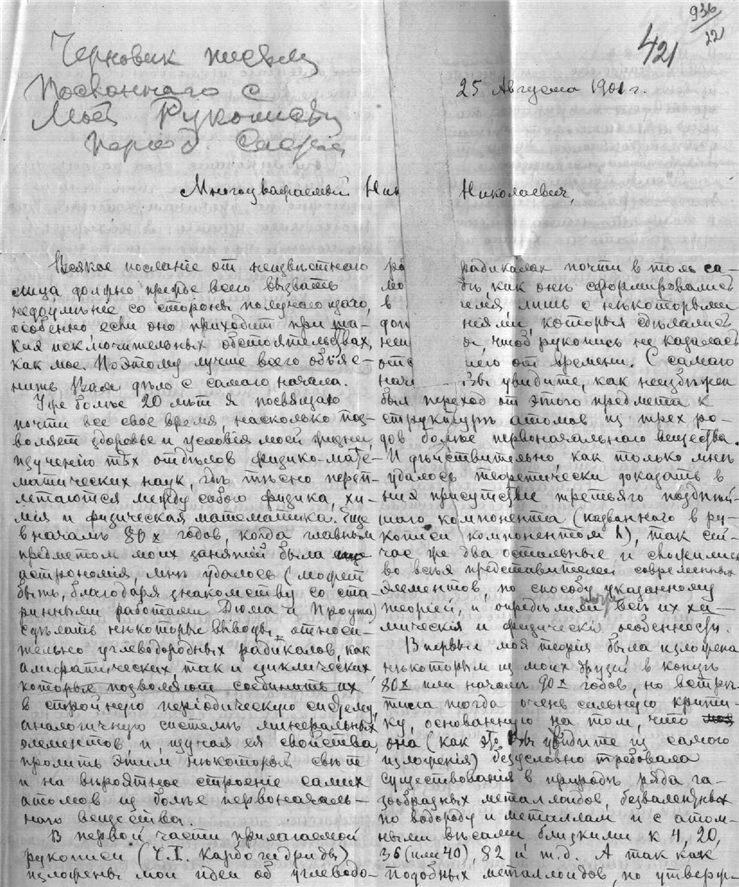 936/22
421
Черновик письма
Посланного с
Моей Рукописью
период.
25 Августа 1901 г.
Многоуважаемый Ник Николаевич,
Всякое послание от неизвѣстнаго
лица должно прежде всего вызвать
недоумѣнiе со стороны получающаго,
особенно если оно приходит при та-
ких исключительных обстоятельствах,
как мое. Поэтому лучше всего объяс-
нить Вам дѣло с самаго начала.
Уже болѣе 20 лѣт я посвящаю
почти все свое время, насколько поз-
воляет здоровье и условiя моей жизни,
изученiю тѣх отдѣлов физико-мате-
матических наук, гдѣ тѣсно переп-
летаются между собою физика, хи-
мiя и физическая математика. Еще
в началѣ 80х годов, когда главным
предметом моих занятiй была еще
астрономiя, мнѣ удалось (может
быть, благодаря знакомству со ста-
ринными работами Дюма и Проута)
сдѣлать нѣкоторые выводы относи-
тельно углеводородных радикалов как
алифатических, так и циклических,
которые позволяют соединить их
в стройную перiодическую систему,
аналогичную системѣ минеральных
элементов, и, изучая ея свойства,
пролить этим нѣкоторый свѣт
и на вѣроятное строенiе самих
атомов из болѣе первоначаль-
наго вещества.
В первой части прилагаемой
рукописи (Ч. I. Карбогидриды)
изложены мои идеи об углеводо-
ро радикалах почти в том са-
мо ѣ как онѣ сформировались
в емя лишь с нѣкоторыми
доп нiями, которыя сдѣланы
неш , чтоб рукопись не казалась
отс шею от времени. С самаго
нач Вы увидите, как неизбѣжен
был переход от этого предмета к
структурѣ атомов из трех ро-
дов болѣе первоначальнаго вещества.
И дѣйствительно, как только мнѣ
удалось теоретически доказать в
ния присутствiе третьяго
шаго компонента (названнаго в ру-
кописи компонентом h), так сей-
час же два остальные и сложились
во всѣх представителей современных
элементов, по способу указанному
теорiей, и опредѣлили всѣ их хи-
мическiя и физическiя особенности.
В первые моя теорiя была изложена
нѣкоторым из моих друзей в концѣ
80х или началѣ 90х годов, но встрѣ-
тила тогда очень сильную крити-
ку, основанную на том, что
она (как это Вы увидите из самого
изложенiя) безусловно требовала
существованiя в природѣ ряда га-
зообразных металлоидов, безвалентных
по водороду и металлам и с атом-
ными вѣсами близкими к 4, 20,
36 (или 40), 82 и т.д. А так как
подобных металлоидов, по утверж-